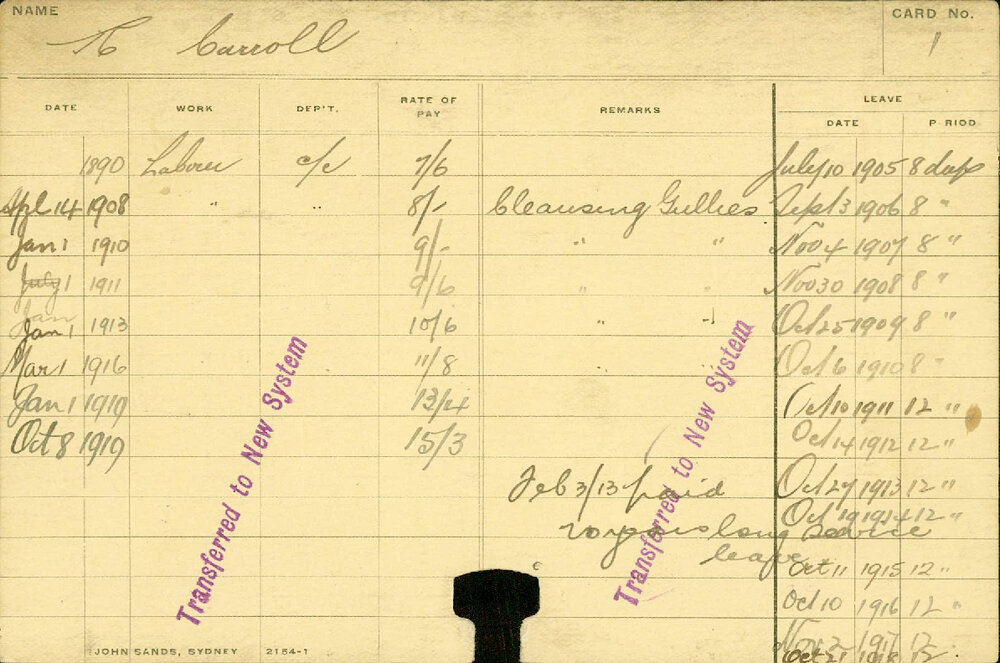 NAME CARD No.
Carroll 1
DATE WORK DEP'T. RATE OF PAY REMARKS LEAVE
DATE P RIOD
1890 Labourer c/c 7/6 July 10 1905 8 days
Apl 14 1908 " " 8/- Cleansing Gullies Sept 3 1906 8 "
Jan 1 1910 9/- " " Nov 4 1907 8 "
July 1 1911 9/6 " " Nov 30 1908 8 "
Jan
Jan 1 1913 10/6 " " Oct 25 1909 8 "
Mar 1 1916 11/8 Oct 6 1910 8 "
Jan 1 1919 13/4 Oct 10 1911 12 "
Oct 8 1919 15/3 Oct 14 1912 12 "
Feb 3/13 paid Oct 27 1913 12 "
Oct 19 1914 12 "
20 years long service
leave Oct 11 1915 12 "
Oct 10 1916 12 "
Nov 1917 12
Oct 21 1918 12 "
Transferred to New System
Transferred to New System
JOHN SANDS, SYDNEY 2154-1